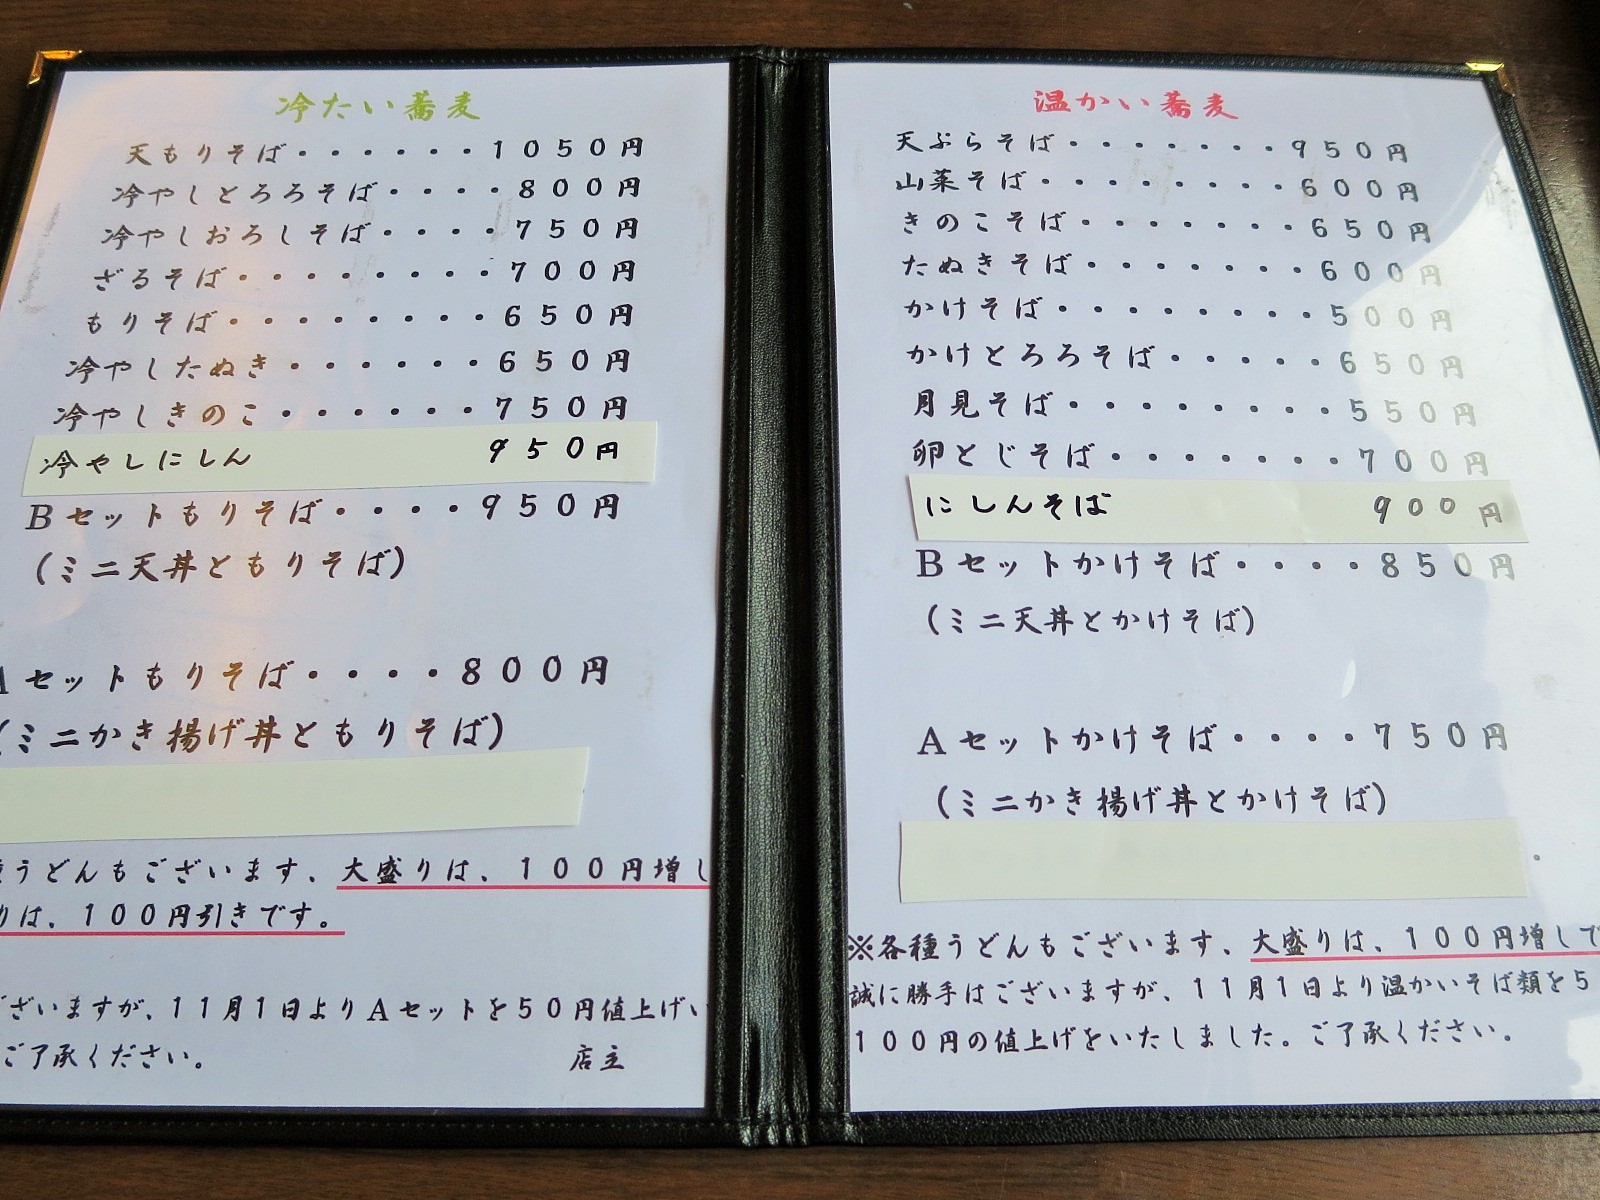 冷たい蕎麦
天もりそば・・・・・・1050円
冷やしとろろそば・・・・800円
冷やしおろしそば・・・・750円
ざるそば・・・・・・・・700円
もりそば・・・・・・・・650円
冷やしたぬき・・・・・・650円
冷やしきのこ・・・・・・750円
冷やしにしん 950円
Bセットもりそば・・・・950円
(ミニ天丼ともりそば)
Aセットもりそば・・・・800円
(ミニかき揚げ丼ともりそば)
うどんもございます、大盛りは、100円増し
りは、100円引きです。
ございますが、11月1日よりAセットを50円値上げい
ご了承ください。 店主
温かい蕎麦
天ぷらそば・・・・・・・950円
山菜そば・・・・・・・・600円
きのこそば・・・・・・・650円
たぬきそば・・・・・・・600円
かけそば・・・・・・・・500円
かけとろろそば・・・・・650円
月見そば・・・・・・・・550円
卵とじそば・・・・・・・700円
にしんそば 900円
Bセットかけそば・・・・850円
(ミニ天丼とかけそば)
Aセットかけそば・・・・750円
(ミニかき揚げ丼とかけそば)
※各種うどんもございます、大盛りは、100円増しで
誠に勝手はございますが、11月1日より温かいそば類を5
100円の値上げをいたしました。ご了承ください。